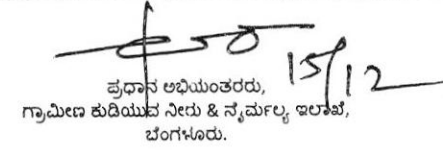 15/12
ಪ್ರಧಾನ ಅಭಿಯಂತರರು,
ಗ್ರಾಮೀಣ ಕುಡಿಯುವ ನೀರು & ನೈರ್ಮಲ್ಯ ಇಲಾಖೆ,
ಬೆಂಗಳೂರು.